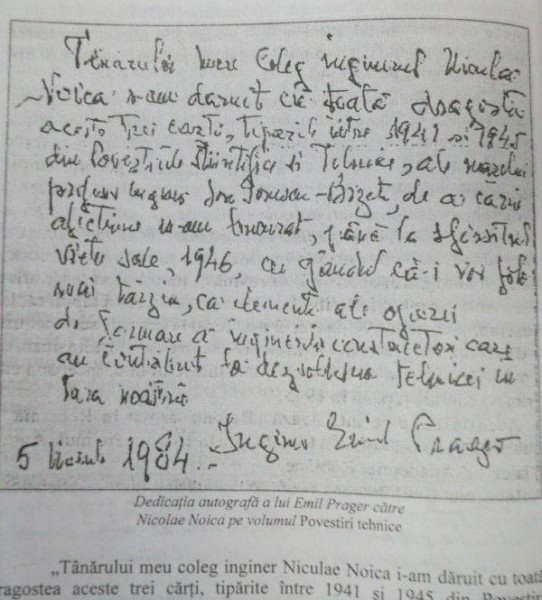 Tânărului meu Coleg inginerul Niculae
Noica i-am daruit cu toată dragostea
aceste trei carti, tiparite între 1941 si 1945
din Povestirile Stiintifice si Tehnice, ale marelui
profesor inginer Ion Ionescu-Bizeț, de a cărui
afectiune m-am bucurat, până la sfârsitul
vietii sale, 1946, cu gândul că-i vor folosi
mai târziu, ca elemente ale operii
de formare a inginerilor constructori care
au contribuit la dezvoltarea tehnicei in
tara noastră
5 1984.- Inginer Emil Prager
Dedicația autografă a lui Emil Prager către
Nicolae Noica pe volumul Povestiri tehnice
„Tânărului meu coleg inginer Niculae Noica i-am dăruit cu toată
ragostea aceste trei cărți, tipărite între 1941 și 1945 din